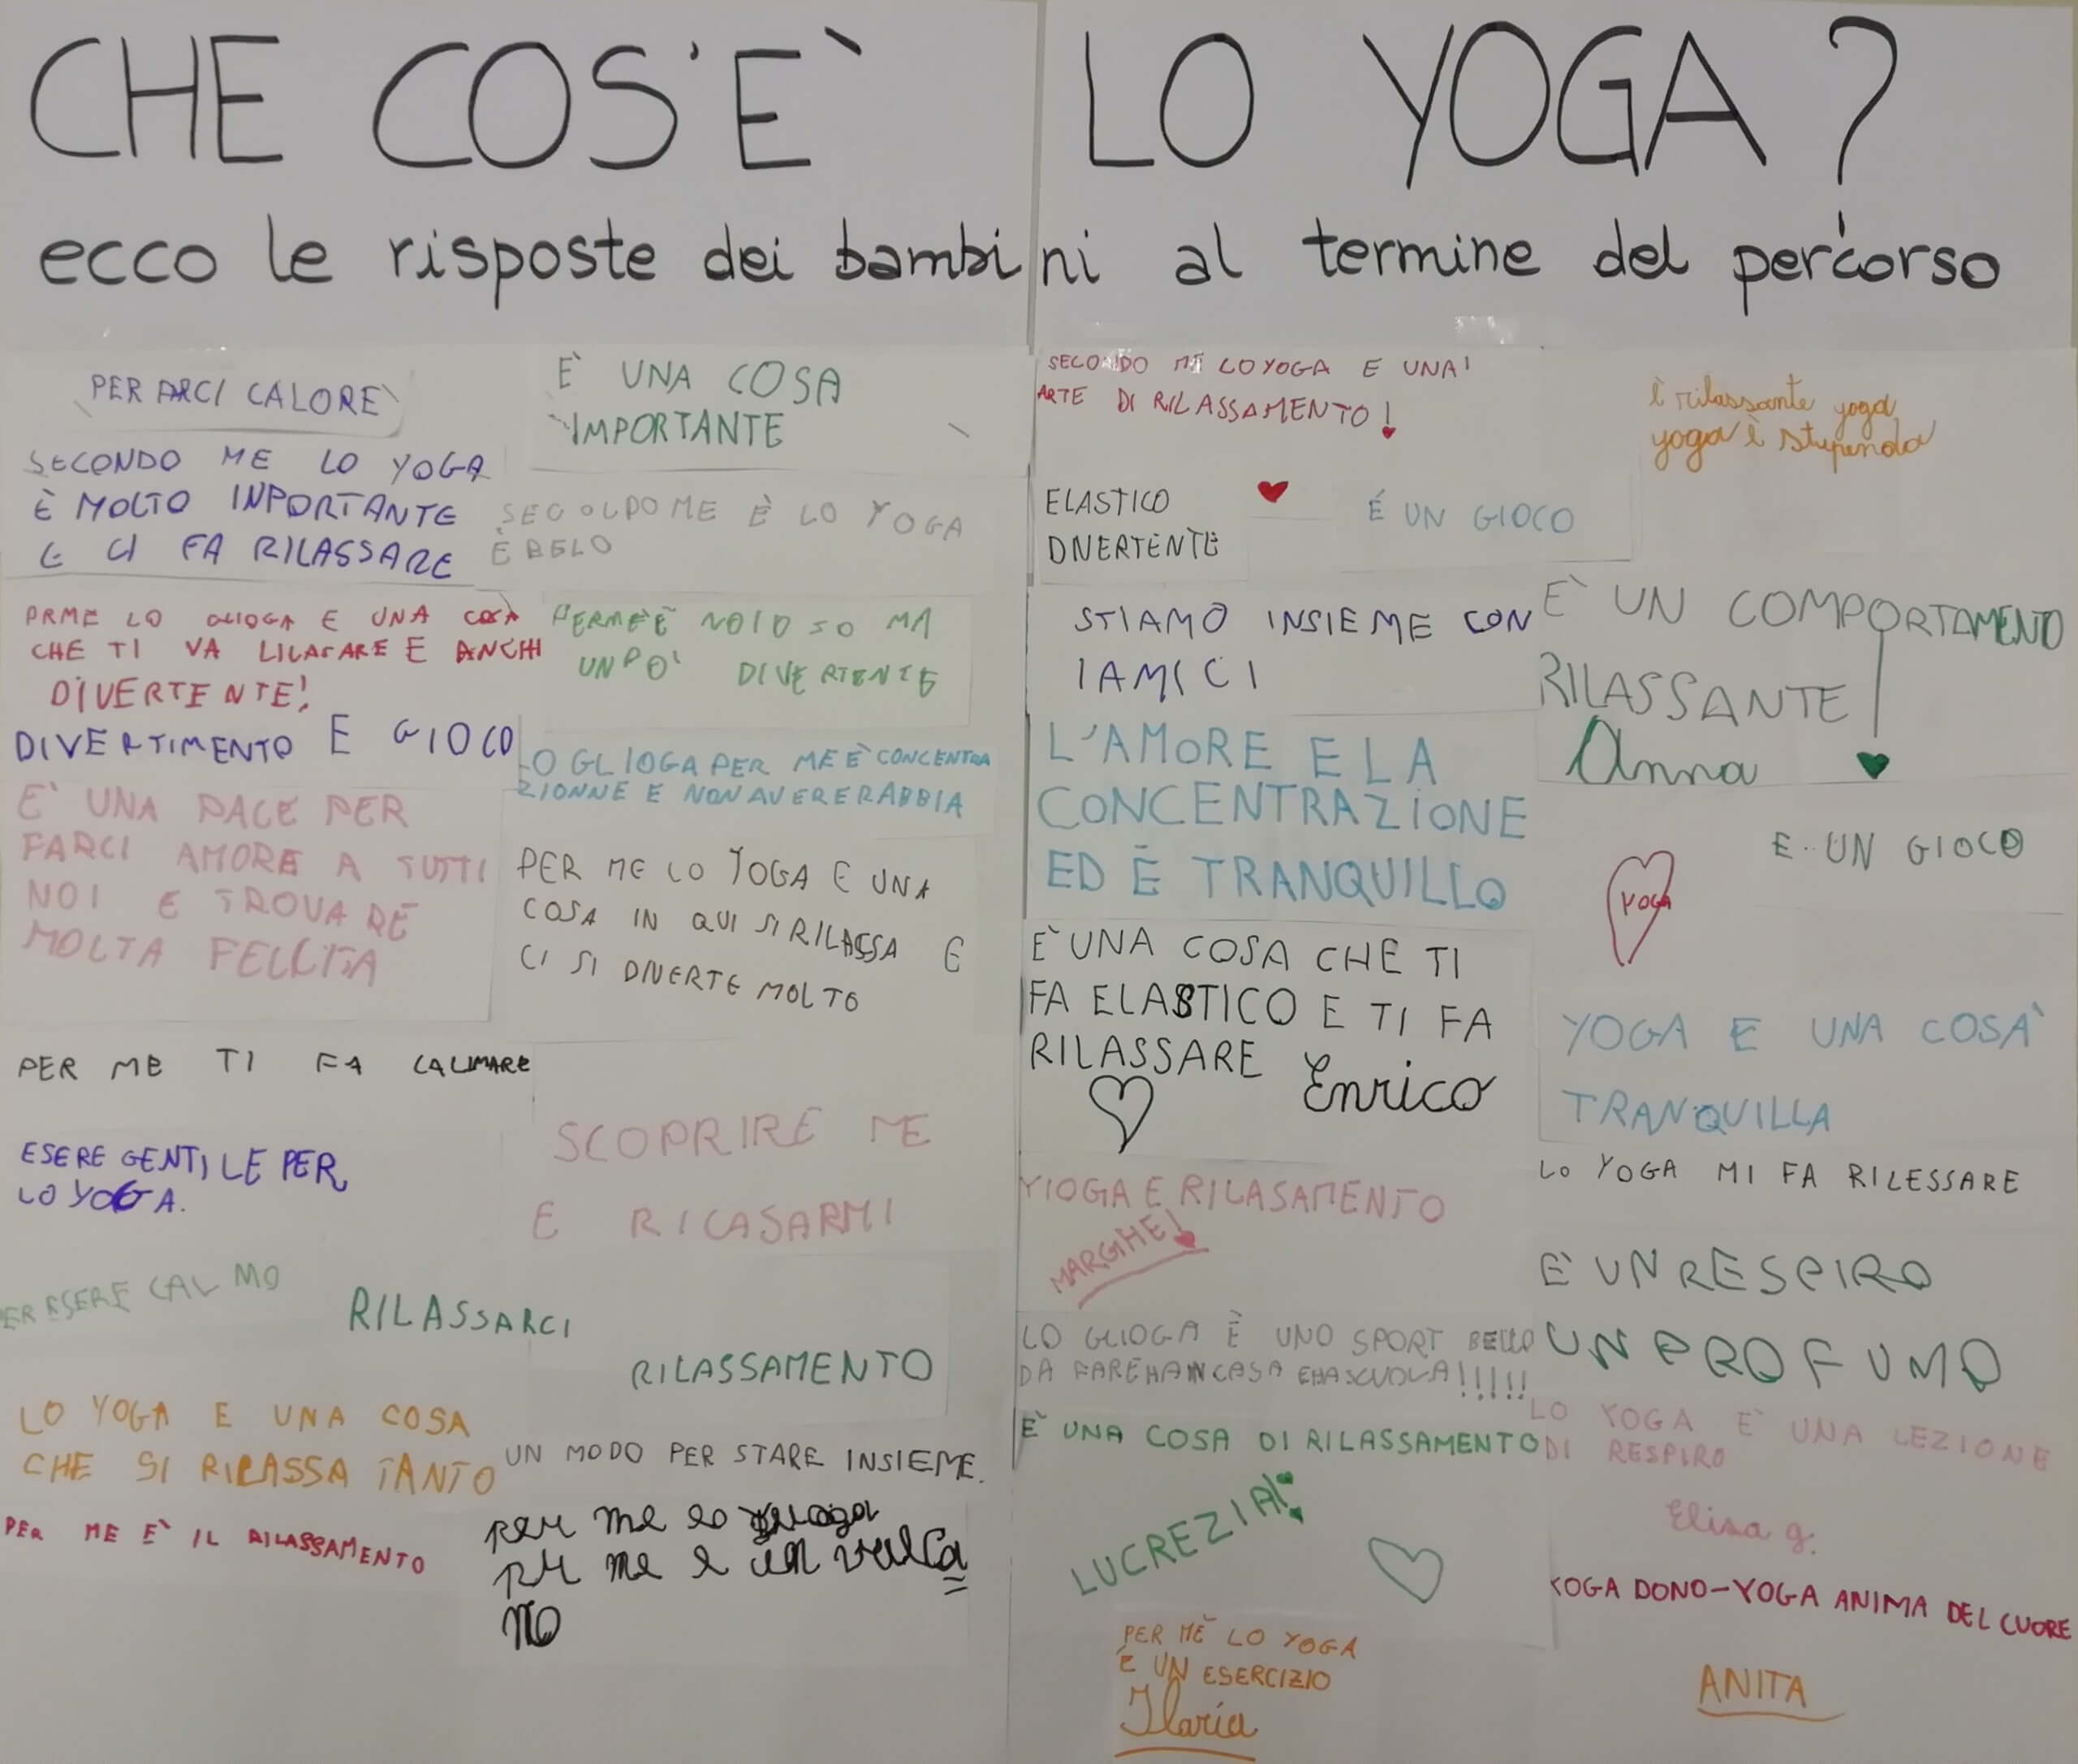 CHE COS'È LO YOGA?
ecco le risposte dei bambini al termine del percorso
PER FARCI CALORE
SECONDO ME LO YOGA
È MOLTO INPORTANTE
E CI FA RILASSARE
PRME LO GLIOGA E UNA COSA
CHE TI VA LILASARE E ANCHI
DIVERTENTE!
DIVERTIMENTO E GIOCO
E' UNA PACE PER
FARCI AMORE A TUTTI
NOI E TROVARE
MOLTA FELICITA
PER ME TI FA CALMARE
ESERE GENTILE PER
LO YOGA.
PER ESERE CALMO
RILASSARCI
LO YOGA E UNA COSA
CHE SI RILASSA TANTO
PER ME E' IL RILASSAMENTO
È UNA COSA
IMPORTANTE
SECOLDO ME È LO YOGA
È BELO
PERME È NOIOSO MA
UN PO' DIVERTENTE
LO GLIOGA PER ME È CONCENTRA
ZIONNE E NON AVERE RABBIA
PER ME LO YOGA E UNA
COSA IN QUI SI RILASSA E
CI SI DIVERTE MOLTO
SCOPRIRE ME
E RILASARMI
RILASSAMENTO
UN MODO PER STARE INSIEME.
per me lo
per me e un vulca
no
SECONDO ME LO YOGA E UNA'
ARTE DI RILASSAMENTO!
ELASTICO
DIVERTENTE
É UN GIOCO
STIAMO INSIEME CON
I AMICI
L'AMORE E LA
CONCENTRAZIONE
ED È TRANQUILLO
E' UNA COSA CHE TI
FA ELASTICO E TI FA
RILASSARE Enrico
YIOGA E RILASAMENTO
MARGHE!
LO GLIOGA È UNO SPORT BELLO
DA FARE HA IN CASA E HA SCUOLA!!!!!
E' UNA COSA DI RILASSAMENTO
LUCREZIA!
PER ME LO YOGA
È UN ESERCIZIO
Ilaria
è rilassante yoga
yoga è stupenda
E' UN COMPORTAMENTO
RILASSANTE!
Anna
E UN GIOCO
YOGA
YOGA E UNA COSA
TRANQUILLA
LO YOGA MI FA RILESSARE
E' UN RESPIRO
UN PROFUMO
LO YOGA E' UNA LEZIONE
DI RESPIRO
Elisa g.
YOGA DONO-YOGA ANIMA DEL CUORE
ANITA